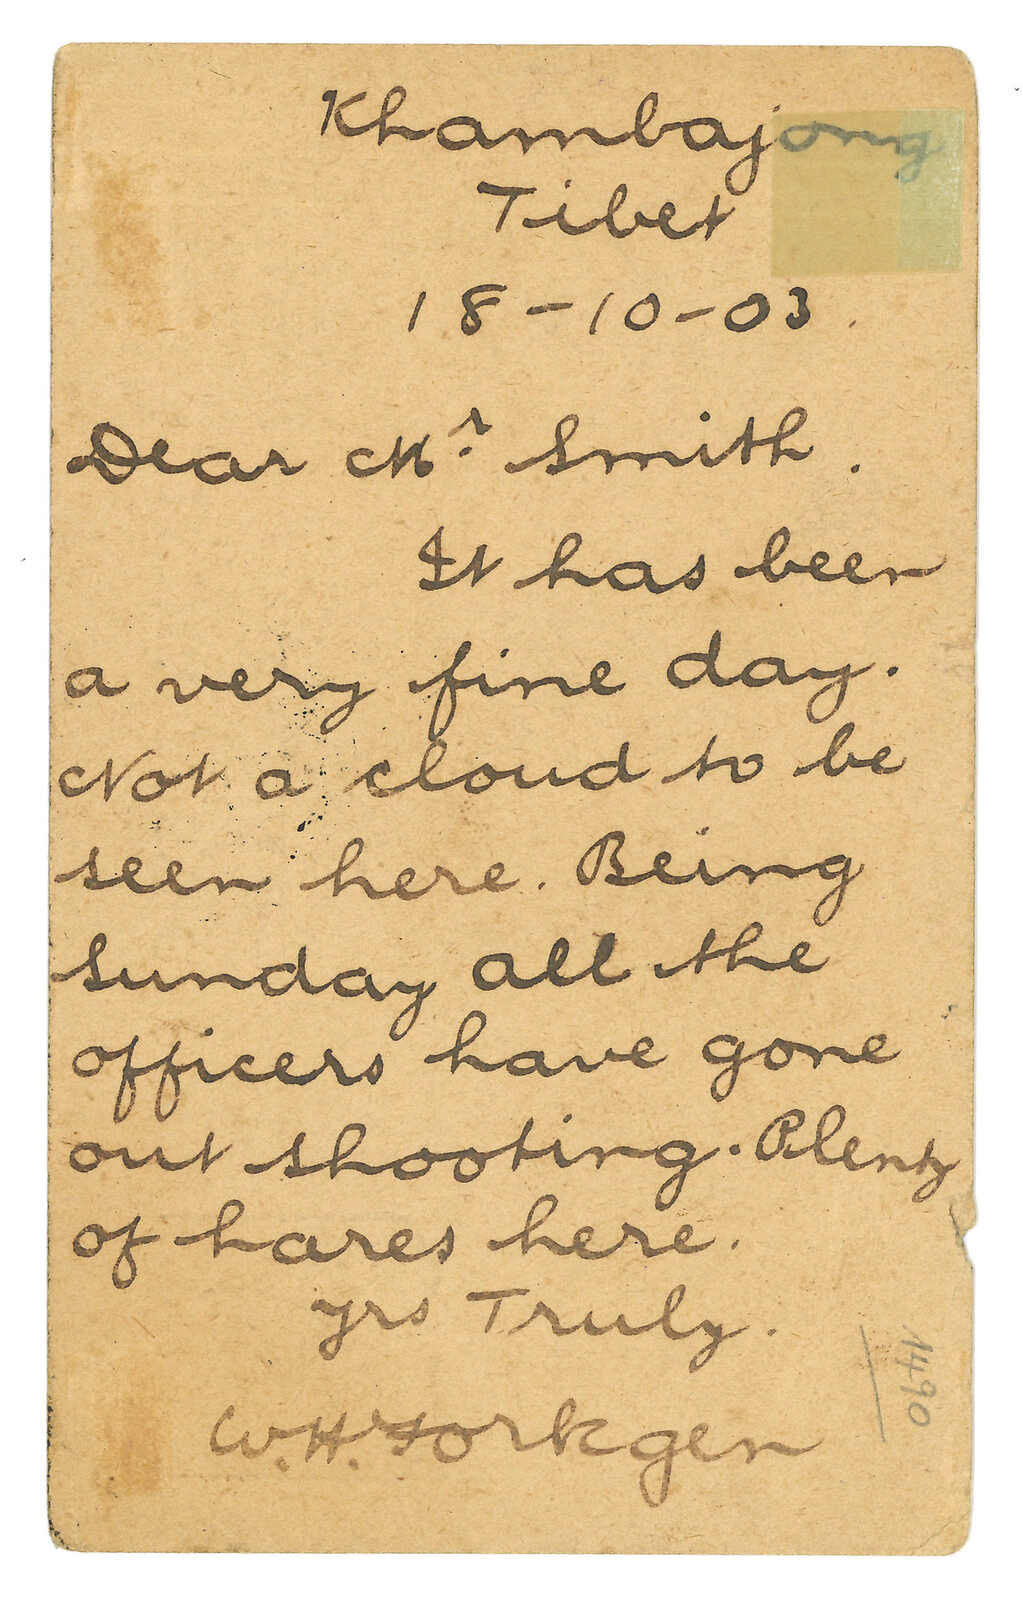 Khambajong
Tibet
18-10-03.
Dear Mr. Smith.
It has been
a very fine day.
Not a cloud to be
seen here. Being
Sunday all the
officers have gone
out shooting. Plenty
of hares here.
yrs Truly.
W.H.
1490